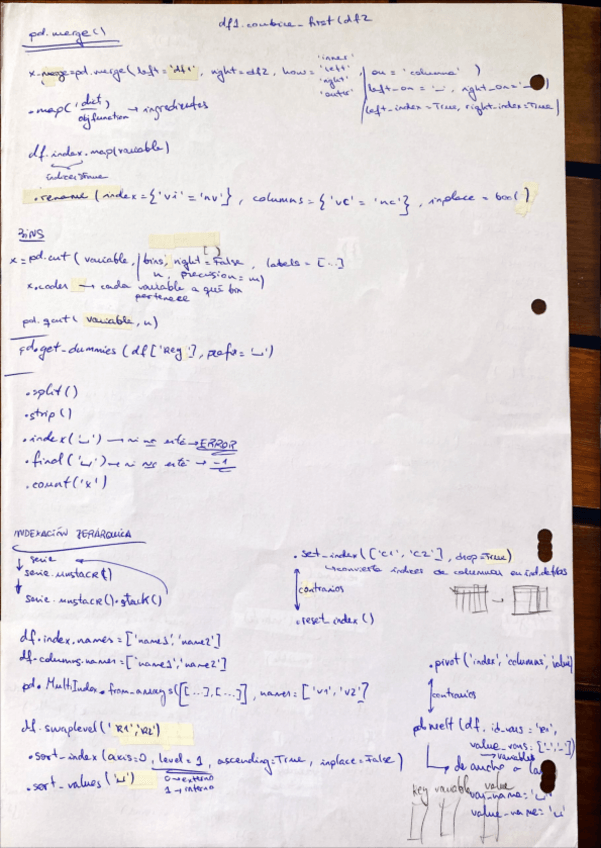 df1.combine_first(df2
pd.merge()
x.merge=pd.merge(left='df1', right=df2, how= 'inner' 'left' 'right' 'outer'
on = 'columna' )
left_on='_', right_on='_'
left_index=True, right_index=True)
.map(dict) → ingredientes
obj function
df.index.map(variable)
.rename(index={'vi'='nv'}, columns={'vc'='nc'}, inplace=bool)
BINS
x=pd.cut(variable, bins, right=False, labels=[...]
n, precision=m)
x.codes → cada variable a qué box
pertenece
pd.qcut(variable, n)
pd.get_dummies(df['Key'], prefix='_')
.split()
.strip()
.index('_') → si no está → ERROR
.find('_') → si no está → -1
.count('x')
INDEXACIÓN JERÁRQUICA
serie
serie.unstack()
serie.unstack().stack()
.set_index(['C1', 'C2'], drop=True)
↳ convierte índices de columnas en ind. de filas
contrarios
.reset_index()
df.index.names=['name1','name2']
df.columns.names=['name1','name2']
pd.MultiIndex.from_arrays([[...],[...]], names=['V1','V2']
.pivot('index','columns','value')
contrarios
df.swaplevel('K1','K2')
pd.melt(df, id_vars='key',
value_vars=['_','_']
variables
.sort_index(axis=0, level=1, ascending=True, inplace=False)
0 → externo
1 → interno
de ancho a
.sort_values('_')
key variable value
var_name='_'
value_name='_'